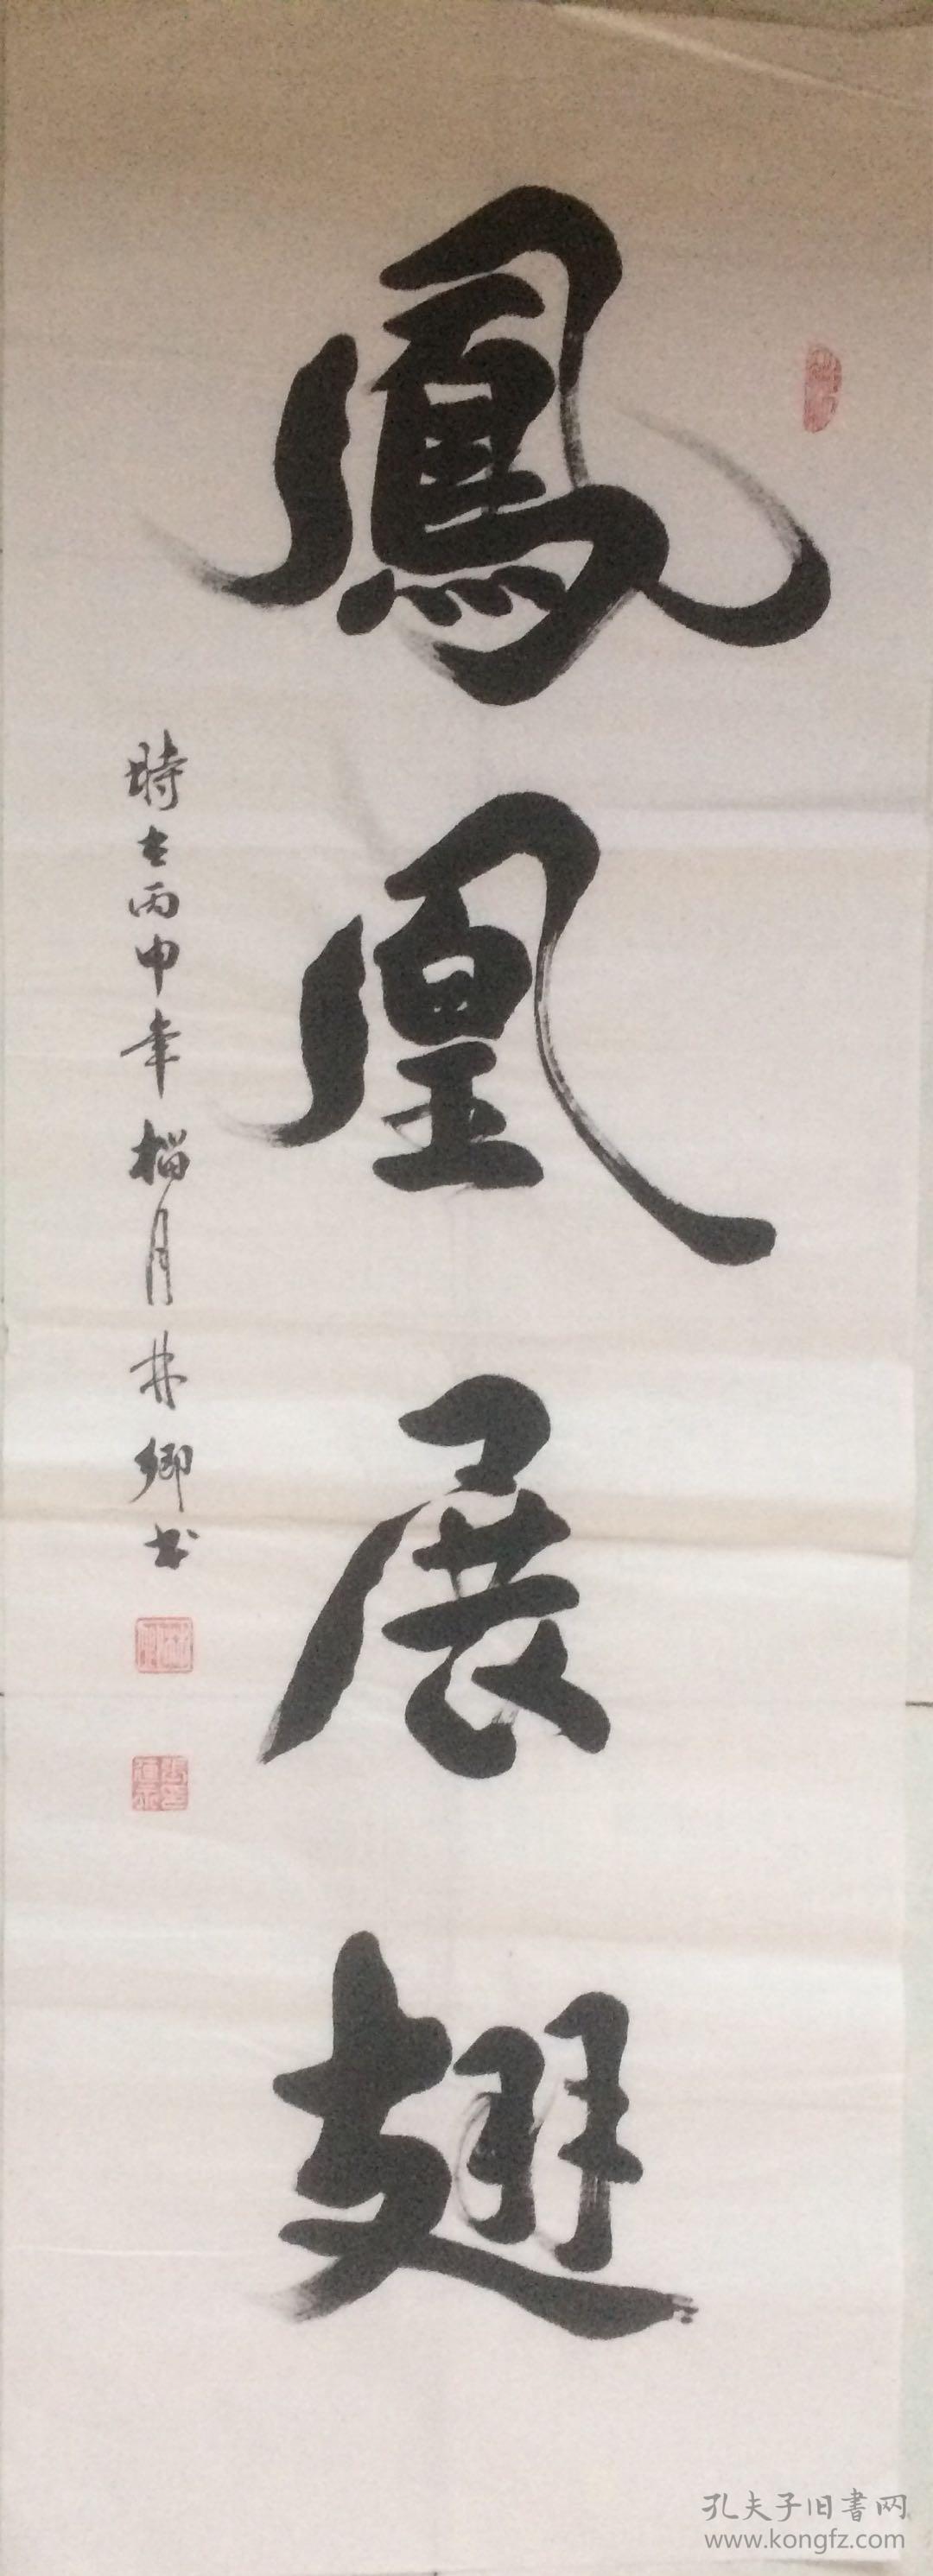 鳳凰展翅
時在丙申年榴月林卿书
孔夫子旧書网
www.kongfz.com